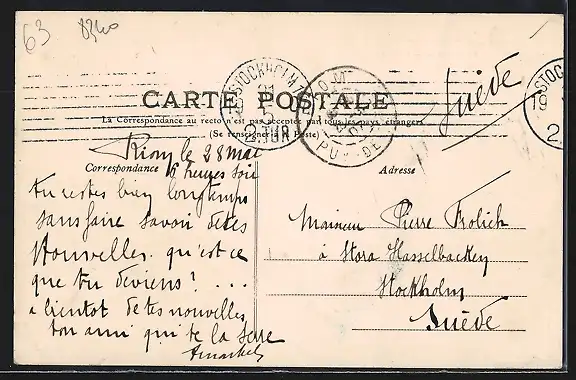 63
8340
STOCKHOLM
2.TUR
PUY-DE
STOCKHO
19
2.
CARTE POSTALE
Suède
La Correspondance au recto n'est pas acceptée par tous les pays étrangers
(Se renseigner à la Poste)
Riom le 28 mai
Correspondance
16 heures soir
Adresse
Tu restes bien longtemps
sans faire savoir de tes
Nouvelles. qu'est ce
que tu deviens? ...
a bientot de tes nouvelles
ton ami qui te la serre
Monsieur Pierre Frolich
à Stora Hasselbacken
Stockholm
Suède